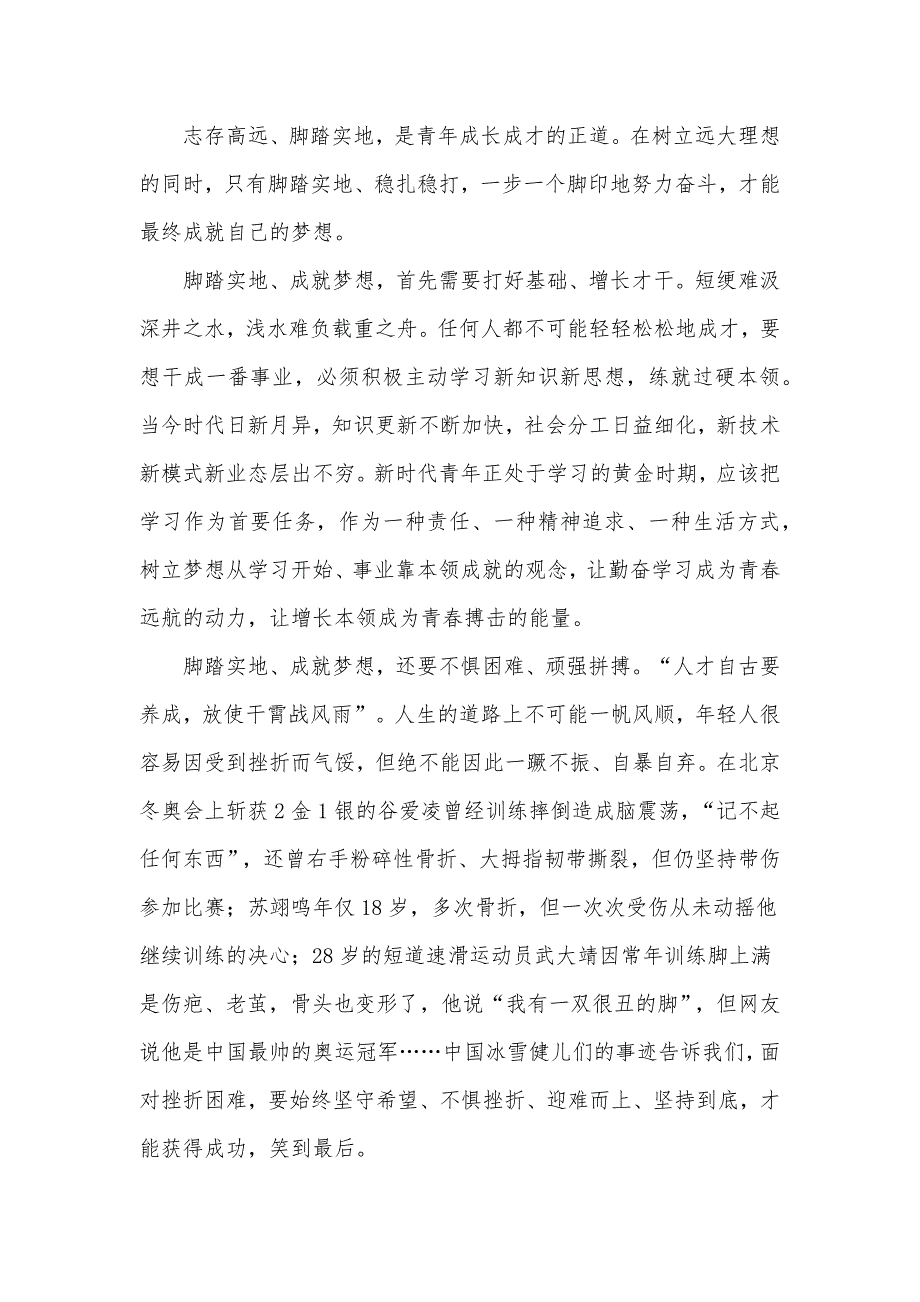 志存高远、脚踏实地，是青年成长成才的正道。在树立远大理想
的同时，只有脚踏实地、稳扎稳打，一步一个脚印地努力奋斗，才能
最终成就自己的梦想。
脚踏实地、成就梦想，首先需要打好基础、增长才干。短绠难汲
深井之水，浅水难负载重之舟。任何人都不可能轻轻松松地成才，要
想干成一番事业，必须积极主动学习新知识新思想，练就过硬本领。
当今时代日新月异，知识更新不断加快，社会分工日益细化，新技术
新模式新业态层出不穷。新时代青年正处于学习的黄金时期，应该把
学习作为首要任务，作为一种责任、一种精神追求、一种生活方式，
树立梦想从学习开始、事业靠本领成就的观念，让勤奋学习成为青春
远航的动力，让增长本领成为青春搏击的能量。
脚踏实地、成就梦想，还要不惧困难、顽强拼搏。“人才自古要
养成，放使干霄战风雨”。人生的道路上不可能一帆风顺，年轻人很
容易因受到挫折而气馁，但绝不能因此一蹶不振、自暴自弃。在北京
冬奥会上斩获 2 金 1 银的谷爱凌曾经训练摔倒造成脑震荡，“记不起
任何东西”，还曾右手粉碎性骨折、大拇指韧带撕裂，但仍坚持带伤
参加比赛；苏翊鸣年仅 18 岁，多次骨折，但一次次受伤从未动摇他
继续训练的决心；28 岁的短道速滑运动员武大靖因常年训练脚上满
是伤疤、老茧，骨头也变形了，他说“我有一双很丑的脚”，但网友
说他是中国最帅的奥运冠军……中国冰雪健儿们的事迹告诉我们，面
对挫折困难，要始终坚守希望、不惧挫折、迎难而上、坚持到底，才
能获得成功，笑到最后。